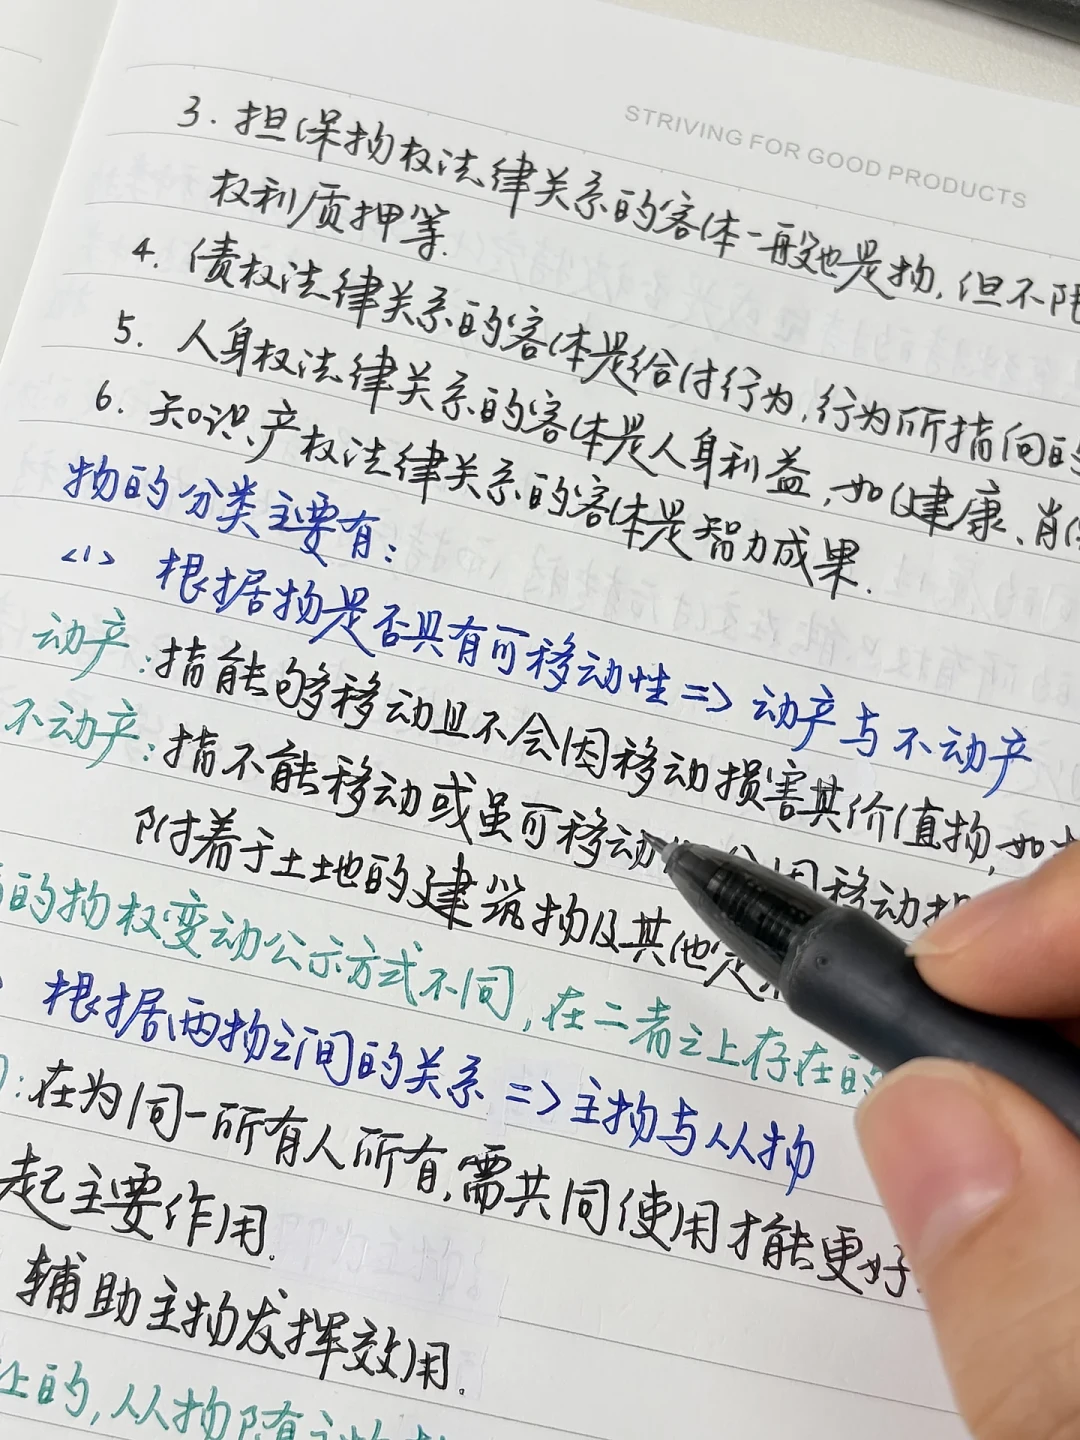 STRIVING FOR GOOD PRODUCTS
3. 担保物权法律关系的客体一般也是物,但不限
权利质押等.
4. 债权法律关系的客体是给付行为,行为所指向的
5. 人身权法律关系的客体是人身利益,如健康、肖
6. 知识产权法律关系的客体是智力成果.
物的分类主要有:
<1> 根据物是否具有可移动性=>动产与不动产
动产:指能够移动且不会因移动损害其价值物,如
不动产:指不能移动或虽可移动 因移动损
附着于土地的建筑物及其他定
的物权变动公示方式不同,在二者之上存在的
根据两物之间的关系=>主物与从物
:在为同一所有人所有,需共同使用才能更好
起主要作用.
辅助主物发挥效用.
上的,从物随主物